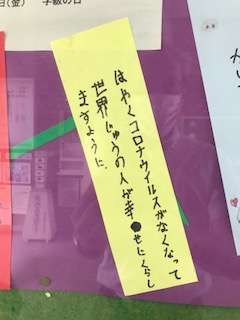 日(金) 学級の日
はやくコロナウイルスがなくなって
世界じゅうの人が幸せにくらし
ますように。